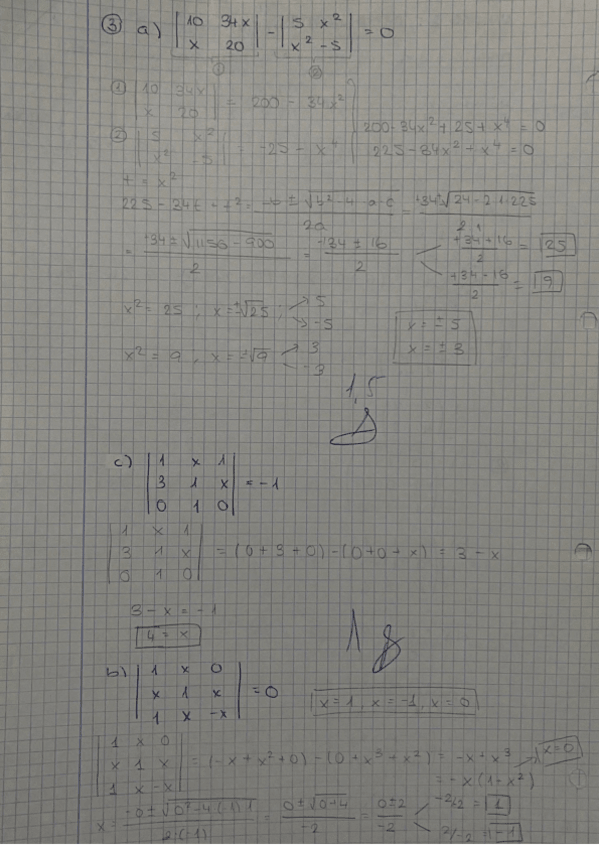 ③ a) | 10 34x | - | 5 x² | = 0
| x 20 | | x² -5 |
① ②
① | 10 34x | = 200 - 34x²
| x 20 |
② | 5 x² | = -25 - x⁴
| x² -5 |
200-34x²+25+x⁴ = 0
225-34x²+x⁴ = 0
t = x²
225 - 34t + t² = -b ± √b²-4·a·c / 2a =
= +34 ± √1156-900 / 2 = +34 ± 16 / 2
+34+16 / 2 = 25
+34-16 / 2 = 9
x² = 25 ; x = ±√25 ; 5
-5
x² = 9 , x = ±√9 3
-3
x = ± 5
x = ± 3
1,5
c) | 1 x 1 |
| 3 1 x | = -1
| 0 1 0 |
| 1 x 1 |
| 3 1 x | = (0+3+0)-(0+0+x) = 3-x
| 0 1 0 |
3-x = -1
4 = x
1
b) | 1 x 0 |
| x 1 x | = 0
| 1 x -x |
x=1, x=-1, x=0
| 1 x 0 |
| x 1 x | = (-x+x²+0)-(0+x³+x²) = -x+x³
| 1 x -x |
x=0
= -x(1-x²)
x = -0±√0²-4(-1)·1 / 2·(-1) = 0±√0+4 / -2 = 0±2 / -2
-2/2 = 1
2/-2 = -1